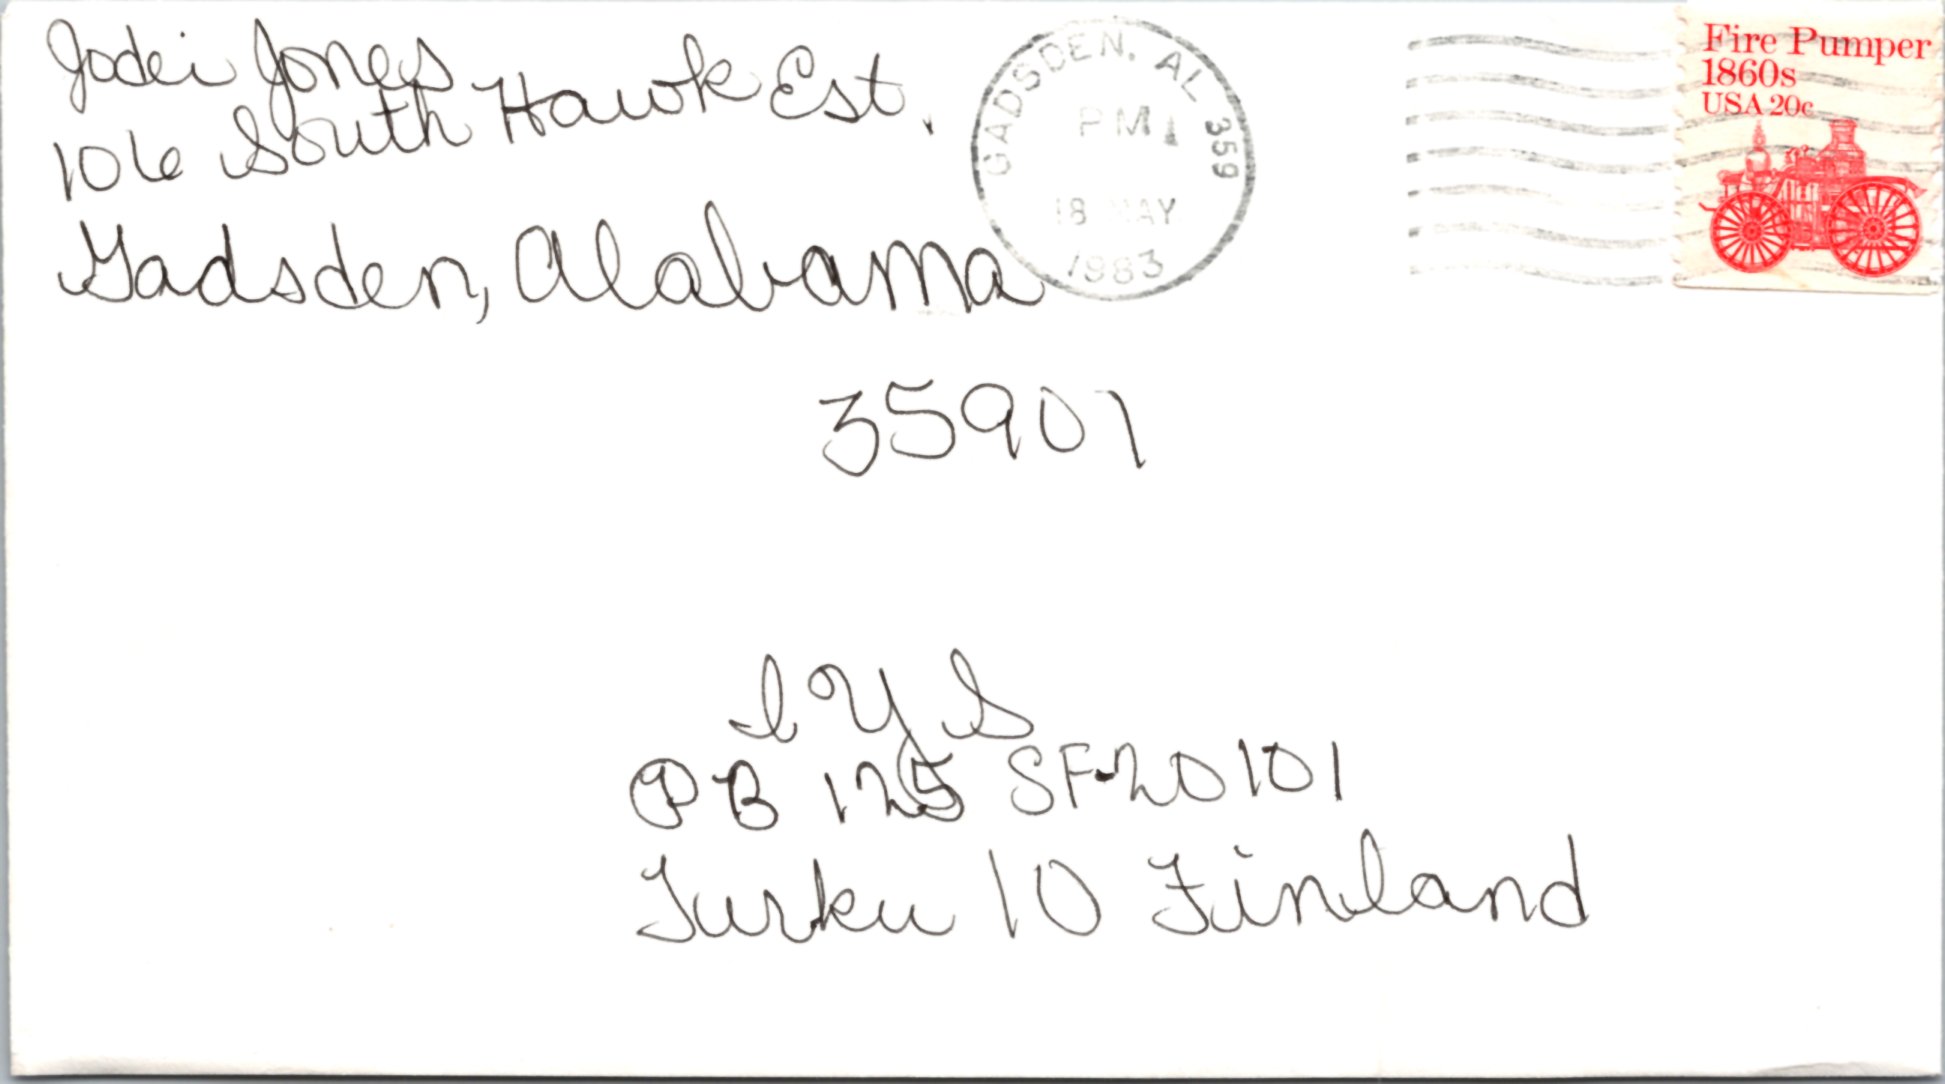 Jodei Jones
106 South Hawk Est.
Gadsden, Alabama
35901
GADSDEN, AL 359
PM
18 MAY
1983
Fire Pumper
1860s
USA 20c
IYS
PB 125 SF-20101
Turku 10 Finland